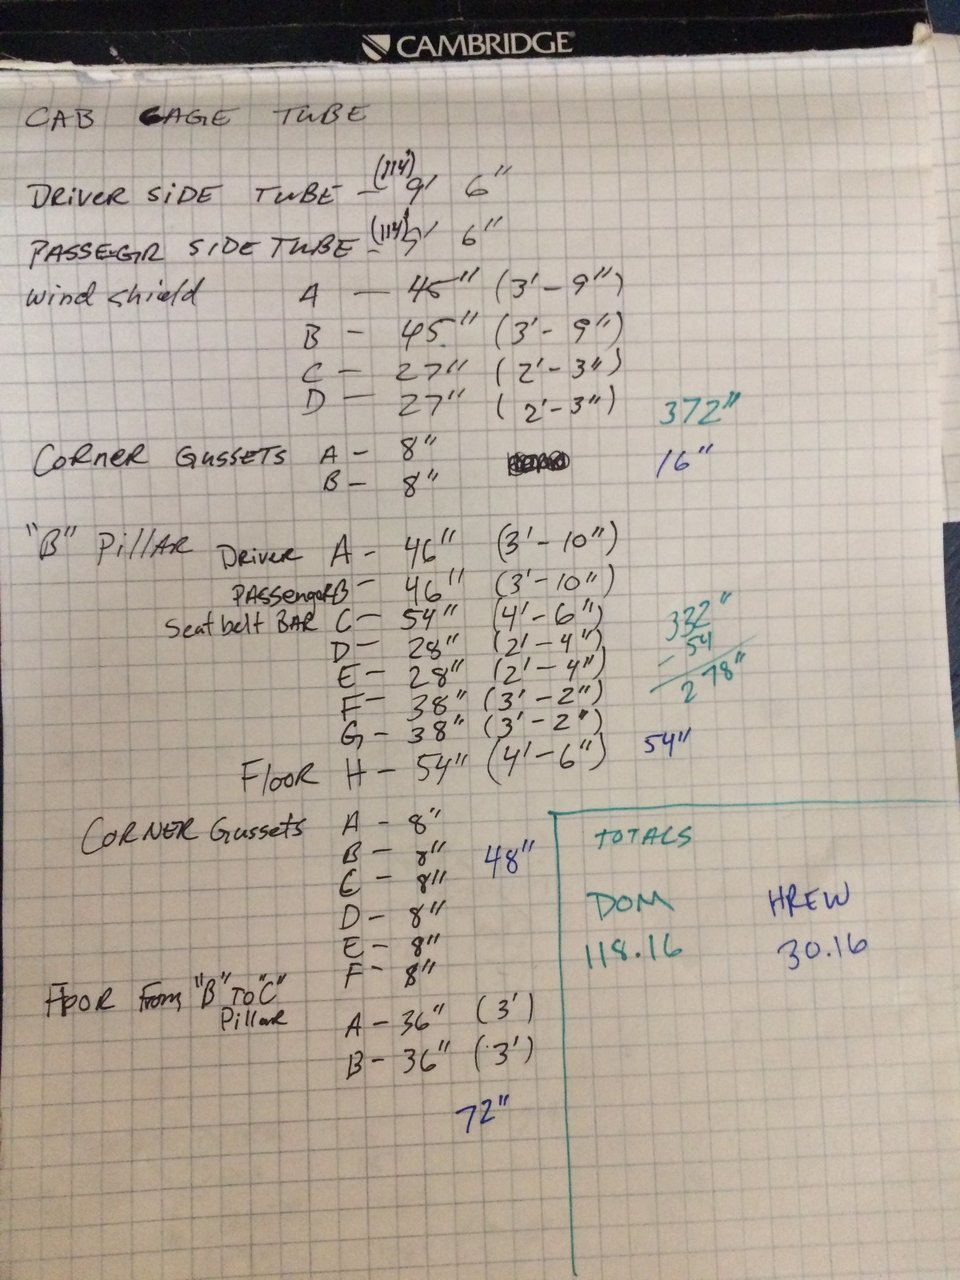 CAMBRIDGE
CAB CAGE TUBE
DRIVER SIDE TUBE - (114") 9' 6"
PASSEGR SIDE TUBE - (114") 9' 6"
wind shield A - 45" (3'-9")
B - 45" (3'-9")
C - 27" (2'-3")
D - 27" (2'-3") 372"
CORNER GUSSETS A - 8" 16"
B - 8"
"B" PillAR DRIVER A - 46" (3'-10")
PASSengeR B - 46" (3'-10")
Seat belt BAR C - 54" (4'-6") 332"
D - 28" (2'-4") - 54
E - 28" (2'-4") 278"
F - 38" (3'-2")
G - 38" (3'-2")
FlooR H - 54" (4'-6") 54"
CORNER Gussets A - 8"
B - 8" 48"
C - 8"
D - 8"
E - 8"
F - 8"
TOTALS
DOM HREW
118.16 30.16
FlOOR From "B" TO "C"
Pillar A - 36" (3')
B - 36" (3')
72"